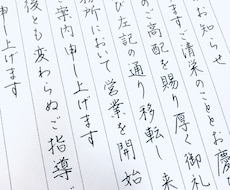 お知らせ
ますご清栄のこととお慶
のご高配を賜り厚く御礼
び左記の通り移転し 来
務所において 営業を開始
案内申し上げます
後とも変わらぬご指導
申し上げます